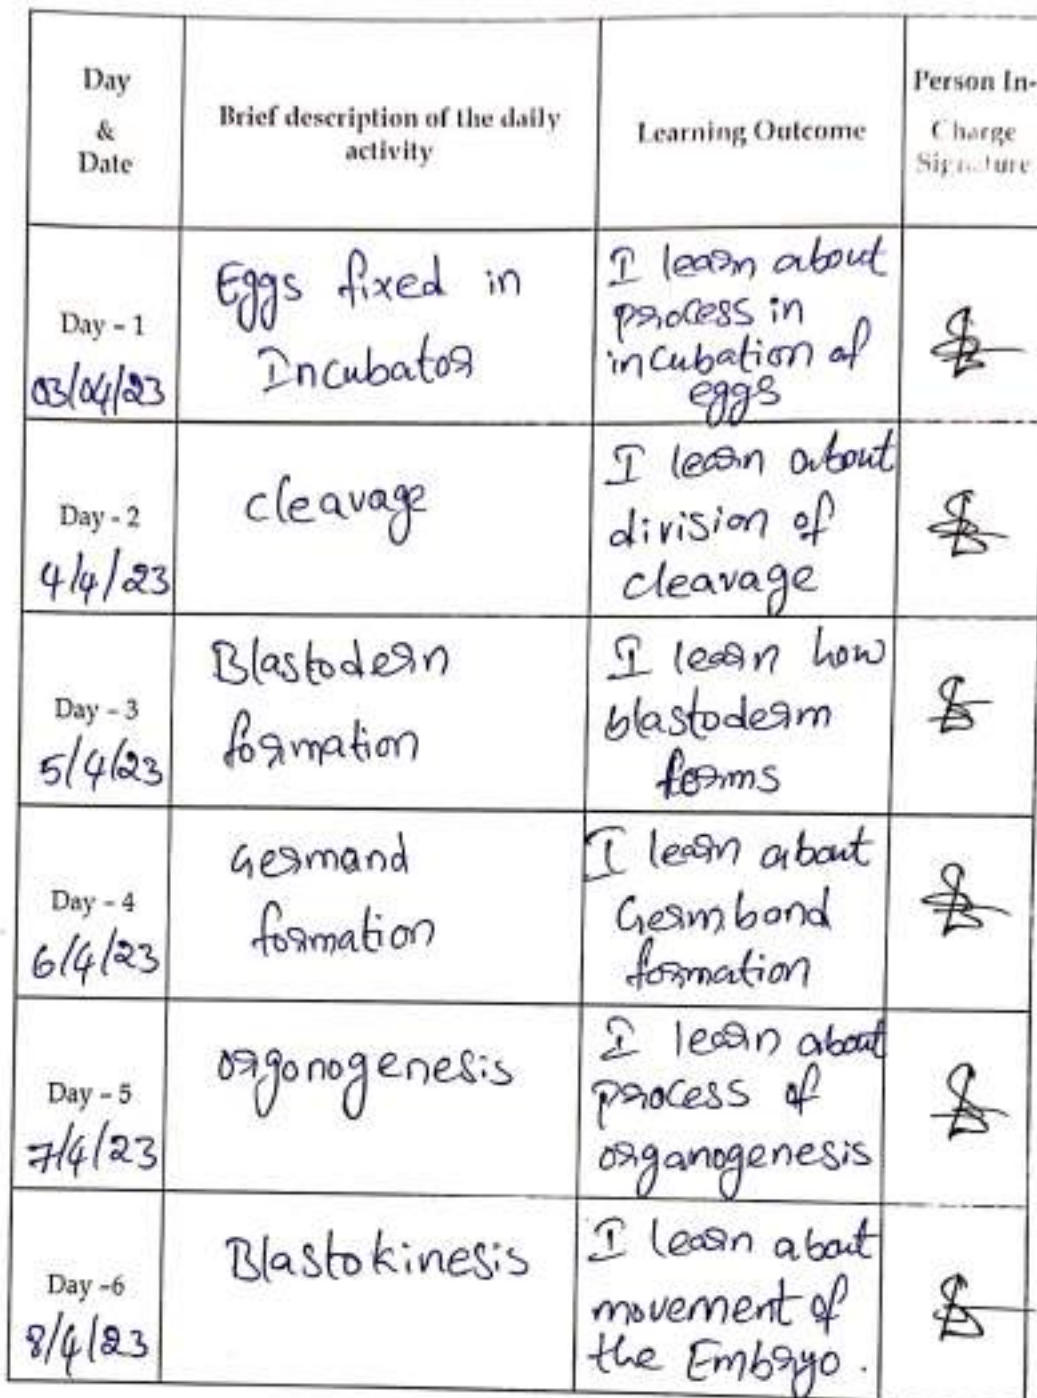 Day
&
Date
Brief description of the daily
activity
Learning Outcome
Person In-
Charge
Signature
Day - 1
03/04/23
Eggs fixed in
Incubator
I learn about
process in
incubation of
eggs
Day - 2
4/4/23
cleavage
I learn about
division of
cleavage
Day - 3
5/4/23
Blastodern
formation
I learn how
blastoderm
forms
Day - 4
6/4/23
Germand
formation
I learn about
Germ bond
formation
Day - 5
7/4/23
orgonogenesis
I learn about
process of
organogenesis
Day -6
8/4/23
Blastokinesis
I learn about
movement of
the Embryo.